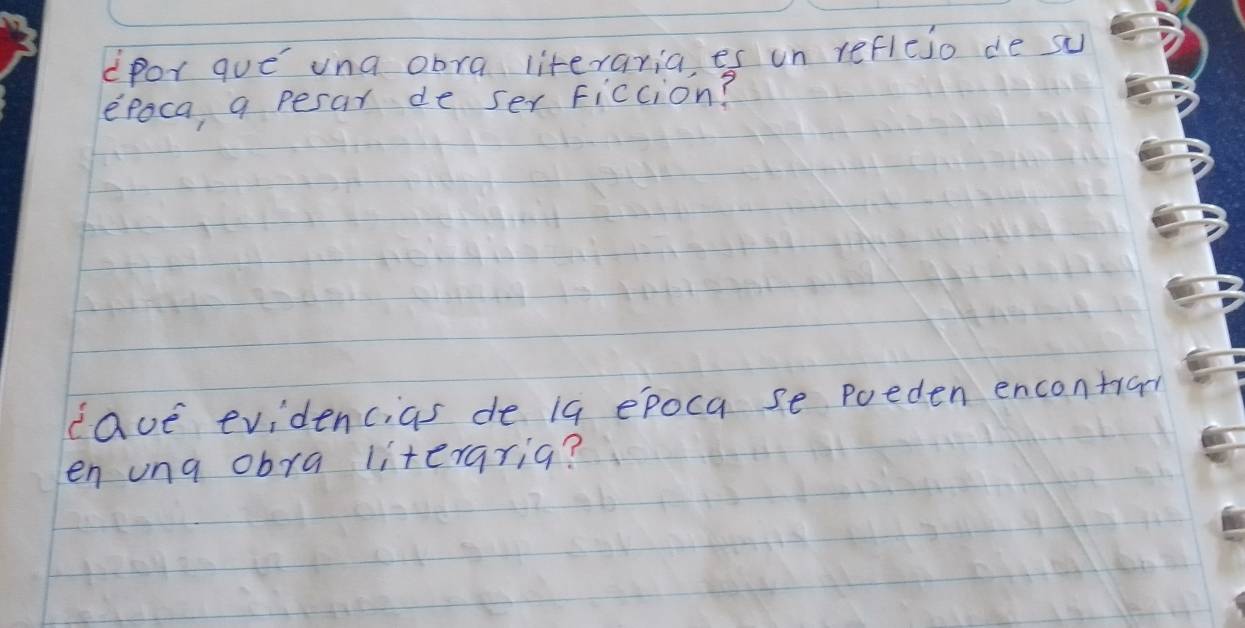 ¿Por qué una obra literaria, es un reflejo de su
época, a pesar de ser ficcion?
¿Qué evidencias de la época se pueden encontrar
en una obra literaria?